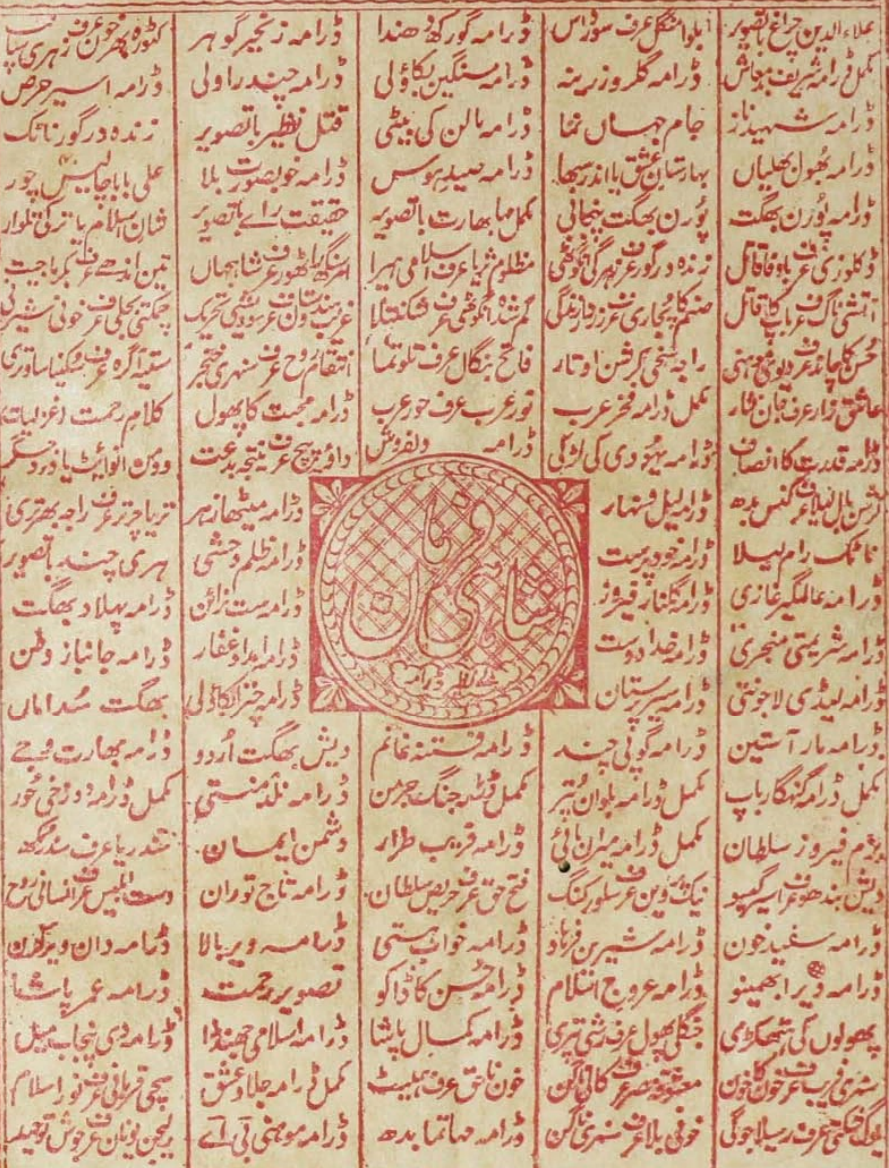 علاءالدین چراغ باتصویر
مکمل ڈرامہ شریف بدمعاش
ڈرامہ شہید ناز
ڈرامہ بھول بھلیاں
ڈرامہ پورن بھگت
عرف باوفا قاتل
آتشی ناگ عرف باپ کا قاتل
حسن کا چاند عرف
عاشق زار عرف جان نثار
ڈرامہ قدرت کا انصاف
کرشن بال لیلا عرف کنس بدھ
ناٹک رام لیلا
ڈرامہ عالمگیر غازی
ڈرامہ شریمتی منجری
ڈرامہ لیڈی لاجونتی
ڈرامہ مار آستین
مکمل ڈرامہ گنہگار باپ
بزم فیروز سلطان
دیش بندھو عرف
ڈرامہ سفید خون
ڈرامہ ویر ابھیمنو
پھولوں کی ہتھکڑی
سنہری فریب عرف خون کا خون
عرف رسیلا جوگی
بلوا منگل عرف سورداس
ڈرامہ گلرو زرینہ
جام جہاں نما
بہارستان عشق یا اندر سبھا
پورن بھگت پنجابی
زندہ درگور عرف
صنم کا پجاری عرف
راجہ سخی کرشن اوتار
مکمل ڈرامہ فخر عرب
ڈرامہ یہودی کی لڑکی
ڈرامہ لیل و نہار
ڈرامہ خود پرست
ڈرامہ گلنار فیروز
ڈرامہ خدا دوست
ڈرامہ پرستان
ڈرامہ گوپی چند
مکمل ڈرامہ بلوان پتر
مکمل ڈرامہ میراں بائی
نیک پروین عرف سلور کنگ
ڈرامہ شیریں فرہاد
ڈرامہ عروج اسلام
جنگلی پھول عرف
معشوقہ مصر عرف کالی ناگن
خونی بلا عرف سنہری ناگن
ڈرامہ گورکھ دھندا
ڈرامہ سنگین بکاؤلی
ڈرامہ مالن کی بیٹی
ڈرامہ صید ہوس
مکمل مہا بھارت باتصویر
مظلوم ثریا عرف اسلامی ہیرا
گمشدہ انگوٹھی عرف شکنتلا
فاتح بنگال عرف تلوتما
نور عرب عرف حور عرب
ڈرامہ دلفروش
ڈرامہ فتنہ خانم
مکمل ڈرامہ جنگ جرمن
ڈرامہ فریب طرار
فتح حق عرف حریص سلطان
ڈرامہ خواب ہستی
ڈرامہ حسن کا ڈاکو
ڈرامہ کمال پاشا
خون ناحق عرف ہیملیٹ
ڈرامہ مہاتما بدھ
ڈرامہ زنجیر گوہر
ڈرامہ چندراولی
قتل نظیر باتصویر
ڈرامہ خوبصورت بلا
حقیقت رائے باتصویر
امر سنگھ راٹھور عرف شاہجہاں
غریب ہندوستان عرف سودیشی تحریک
انتقام روح عرف سنہری خنجر
ڈرامہ محبت کا پھول
داؤ پیچ عرف نتیجہ بدعت
ڈرامہ میٹھا زہر
ڈرامہ ظلم وحشی
ڈرامہ ست نرائن
ڈرامہ
ڈرامہ چترا بکاؤلی
دیش بھگت اردو
ڈرامہ نل دمنتی
دشمن ایمان
ڈرامہ تاج توران
ڈرامہ ویر بالا
تصویر رحمت
ڈرامہ اسلامی جھنڈا
مکمل ڈرامہ جلاد عشق
ڈرامہ موہنی بی اے
کٹورہ بھر خون عرف زہری سانپ
ڈرامہ اسیر حرص
زندہ درگور ناٹک
علی بابا چالیس چور
شان اسلام یا ترکی تلوار
تین اندھے عرف بکرماجیت
چمکتی بجلی عرف خونی شیرنی
ستیہ گرہ عرف
کلام رحمت (غزلیات)
تریا چرتر عرف راجہ بھرتری
ہری چند باتصویر
ڈرامہ پہلاد بھگت
ڈرامہ جانباز وطن
بھگت سداماں
ڈرامہ بھارت وجے
مکمل ڈرامہ دوزخی حور
دست ابلیس عرف انسانی روح
ڈرامہ دان ویر کرن
ڈرامہ عمر پاشا
ڈرامہ دی پنجاب میل
سچی قربانی عرف نور اسلام